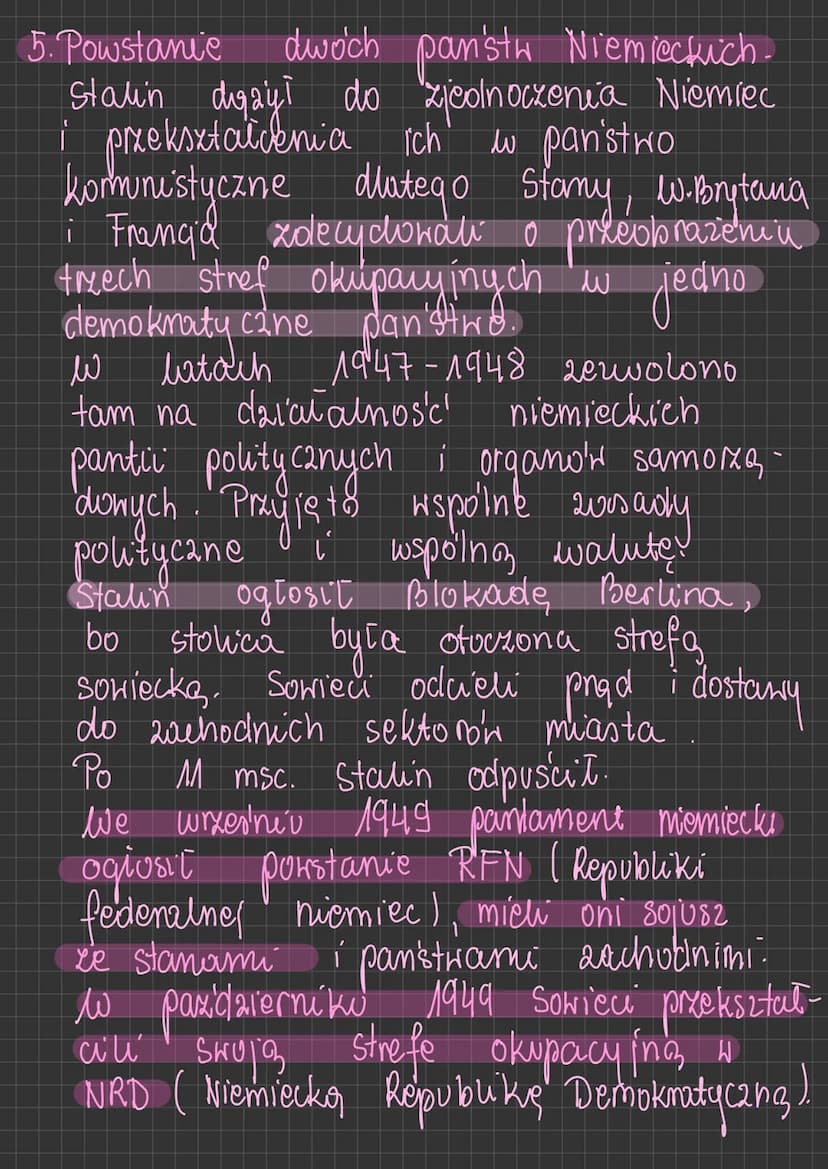 5. Powstanie dwóch państw Niemieckich.
Stalin dążył do zjednoczenia Niemiec
i przekształcenia ich w państwo
komunistyczne dlatego Stany, W. Brytania
i Francja zdecydowali o przeobrażeniu
trzech stref okupacyjnych w jedno
demokratyczne państwo.
W latach 1947-1948 zezwolono
tam na działalność niemieckich
partii politycznych i organów samorzą-
dowych. Przyjęto wspólne zasady
polityczne i wspólną walutę.
Stalin ogłosił Blokadę Berlina,
bo stolica była otoczona strefą
sowiecką. Sowieci odcieli prąd i dostawy
do zachodnich sektorów miasta.
Po 11 msc. Stalin odpuścił.
We wrześniu 1949 parlament niemiecki
ogłosił powstanie RFN (Republiki
federalnej niemiec), mieli oni sojusz
ze stanami i państwami zachodnimi.
W październiku 1949 Sowieci przekształ-
cili swoją strefe okupacyjną w
NRD (Niemiecką Republikę Demokratyczną).